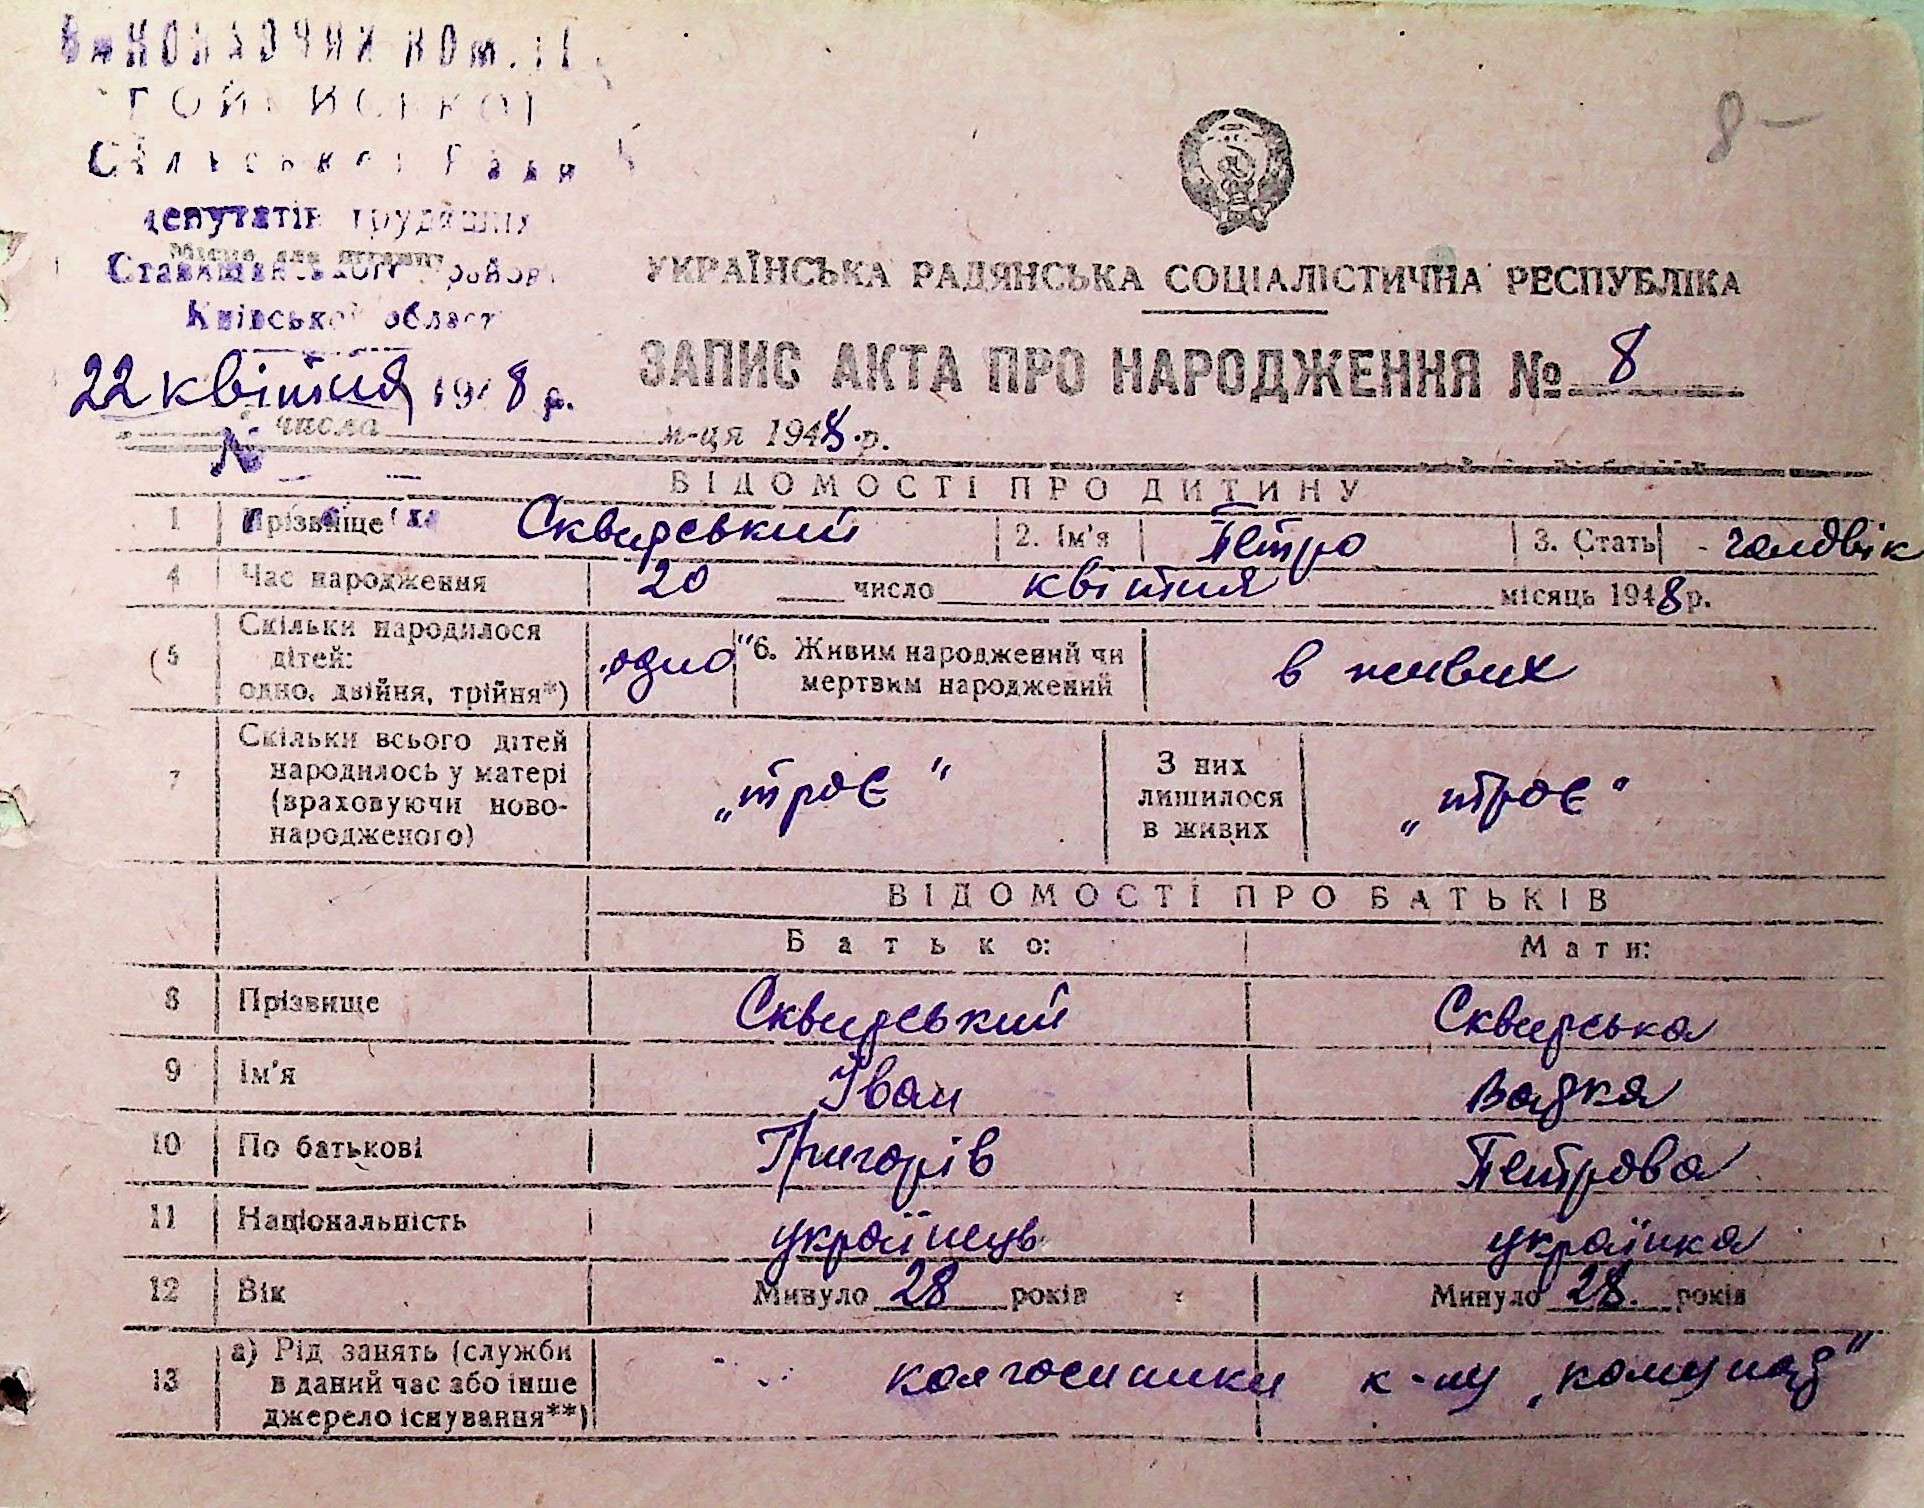 Виконавчий ком.
Сільської Ради
депутатів трудящих
Місце для штампу
Ставищанського району
Київської області
8 –
УКРАЇНСЬКА РАДЯНСЬКА СОЦІАЛІСТИЧНА РЕСПУБЛІКА
ЗАПИС АКТА ПРО НАРОДЖЕННЯ № 8
22 квітня 1948 р.
числа м-ця 1948 р.
№
ВІДОМОСТІ ПРО ДИТИНУ
1 Прізвище Сквирський 2. Ім'я Петро 3. Стать - чоловік
4 Час народження 20 число квітня місяць 1948 р.
5 Скільки народилося дітей: одно, двійня, трійня*) одно 6. Живим народжений чи мертвим народжений в живих
7 Скільки всього дітей народилось у матері (враховуючи ново-народженого) „троє" З них лишилося в живих „троє"
ВІДОМОСТІ ПРО БАТЬКІВ
Батько: Мати:
8 Прізвище Сквирський Сквирська
9 Ім'я Іван
10 По батькові Григорів Петрова
11 Національність українець українка
12 Вік Минуло 28 років Минуло 28. років
13 а) Рід занять (служби в даний час або інше джерело існування**) колгоспники к-пу